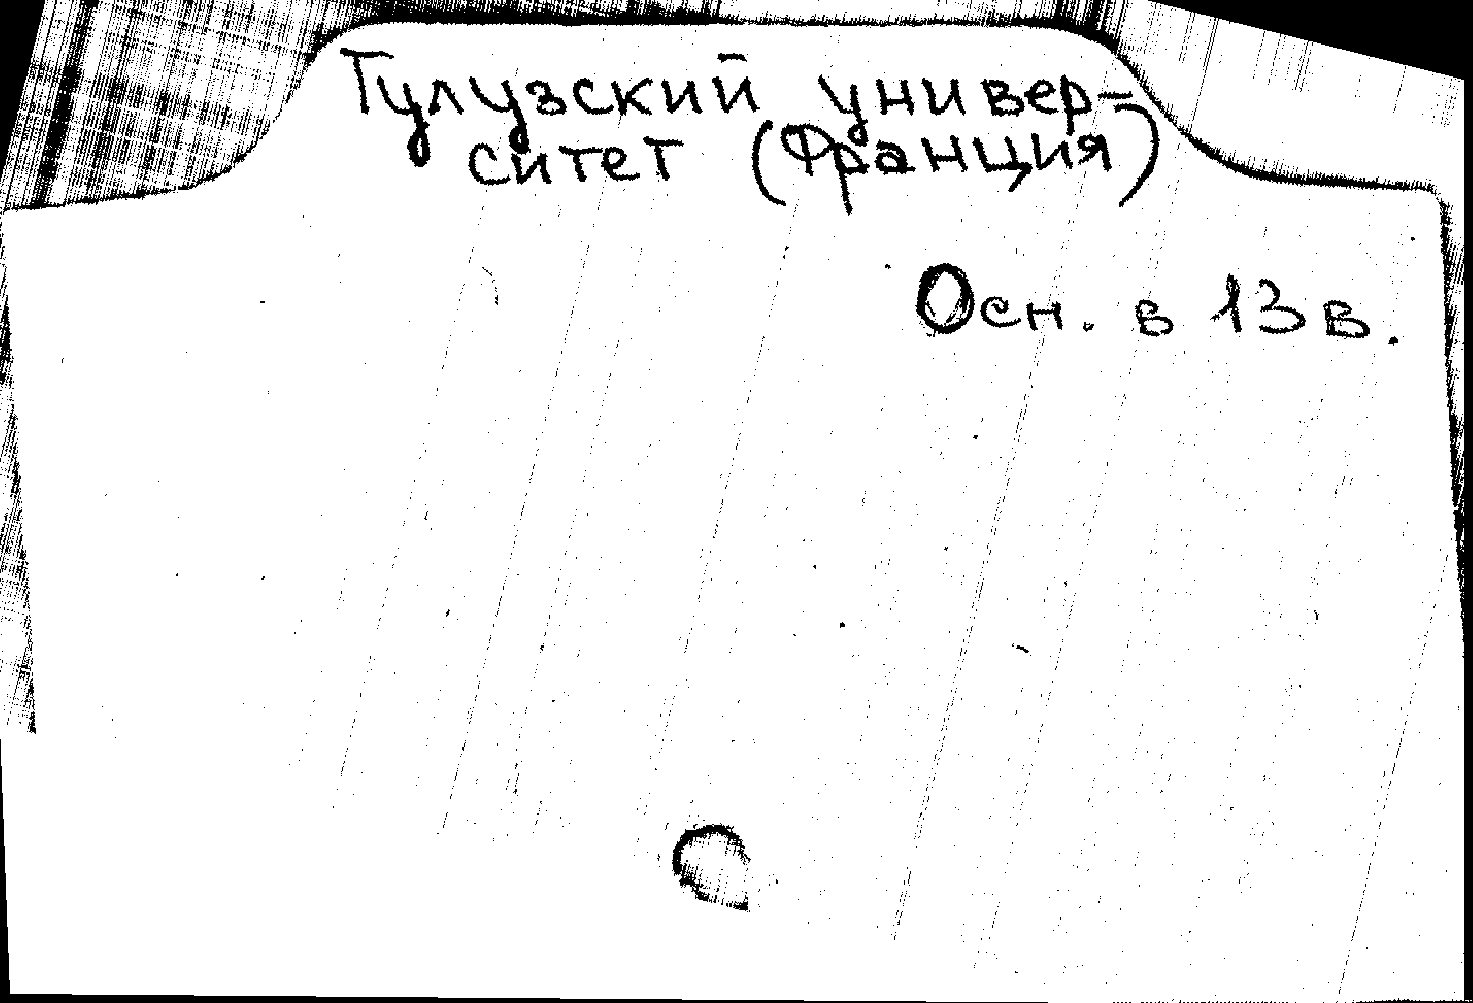 Тулузский универ-
ситет (Франция)
Осн. в 13 в.